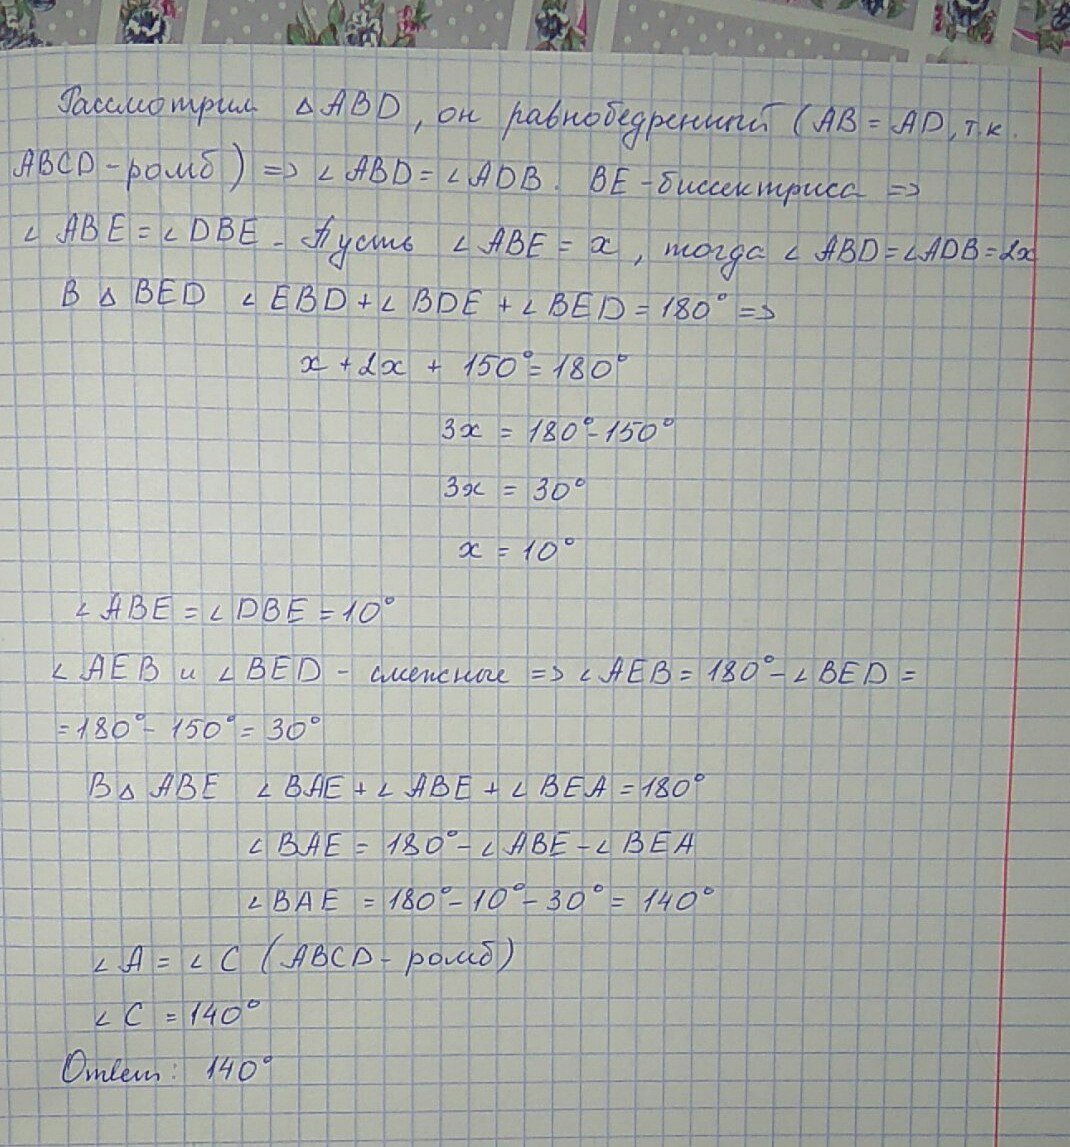 Рассмотрим △ABD, он равнобедренный (AB = AD, т.к.
ABCD - ромб) => ∠ABD = ∠ADB. BE - биссектриса =>
∠ABE = ∠DBE. Пусть ∠ABE = x, тогда ∠ABD = ∠ADB = 2x
В △BED ∠EBD + ∠BDE + ∠BED = 180° =>
x + 2x + 150° = 180°
3x = 180° - 150°
3x = 30°
x = 10°
∠ABE = ∠DBE = 10°
∠AEB и ∠BED - смежные => ∠AEB = 180° - ∠BED =
= 180° - 150° = 30°
В △ABE ∠BAE + ∠ABE + ∠BEA = 180°
∠BAE = 180° - ∠ABE - ∠BEA
∠BAE = 180° - 10° - 30° = 140°
∠A = ∠C (ABCD - ромб)
∠C = 140°
Ответ: 140°